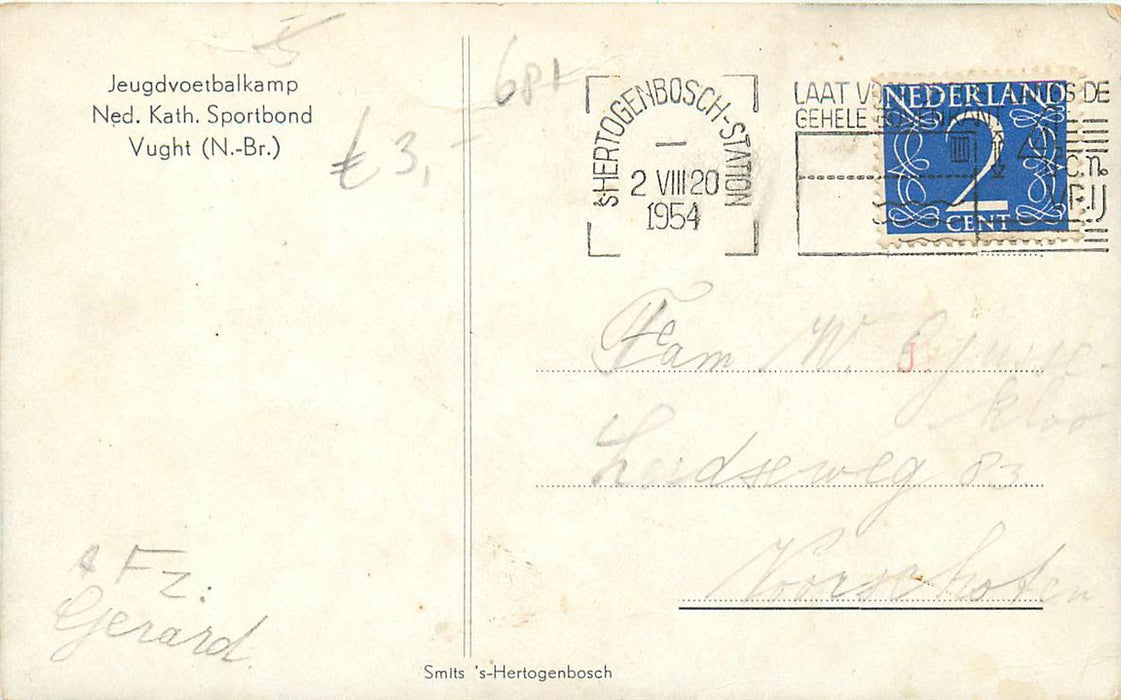 Jeugdvoetbalkamp
Ned. Kath. Sportbond
Vught (N.-Br.)
€ 3,-
681
's HERTOGENBOSCH-STATION
2 VIII 20
1954
LAAT DE
GEHELE
VRIJ
NEDERLAND
2
CENT
Fam W.
Leidseweg 83
Voorschoten
Fz:
Gerard
Smits 's-Hertogenbosch